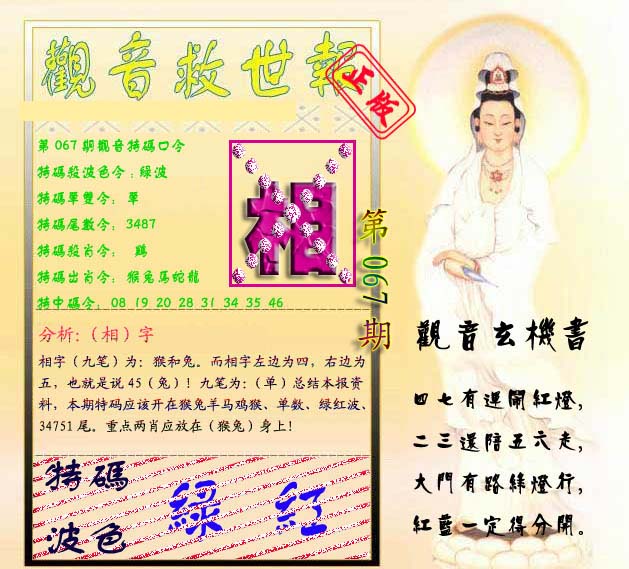 觀音救世報
正版
第 067 期觀音特碼口令
特碼殺波色令：綠波
特碼單雙令： 單
特碼尾數令： 3487
特碼殺肖令： 鷄
特碼出肖令： 猴兔馬蛇龍
特中碼令： 08 19 20 28 31 34 35 46
相
第067期
分析：（相）字
相字（九笔）为：猴和兔。而相字左边为四，右边为
五，也就是说 45（兔）！九笔为：（单）总结本报资
料，本期特码应该开在猴兔羊马鸡猴、单数、绿红波、
34751 尾。重点两肖应放在（猴兔）身上！
特碼
波色
綠 紅
觀音玄機書
四七有運開紅燈，
二三還陪五六走，
大門有路綠燈行，
紅藍一定得分開。